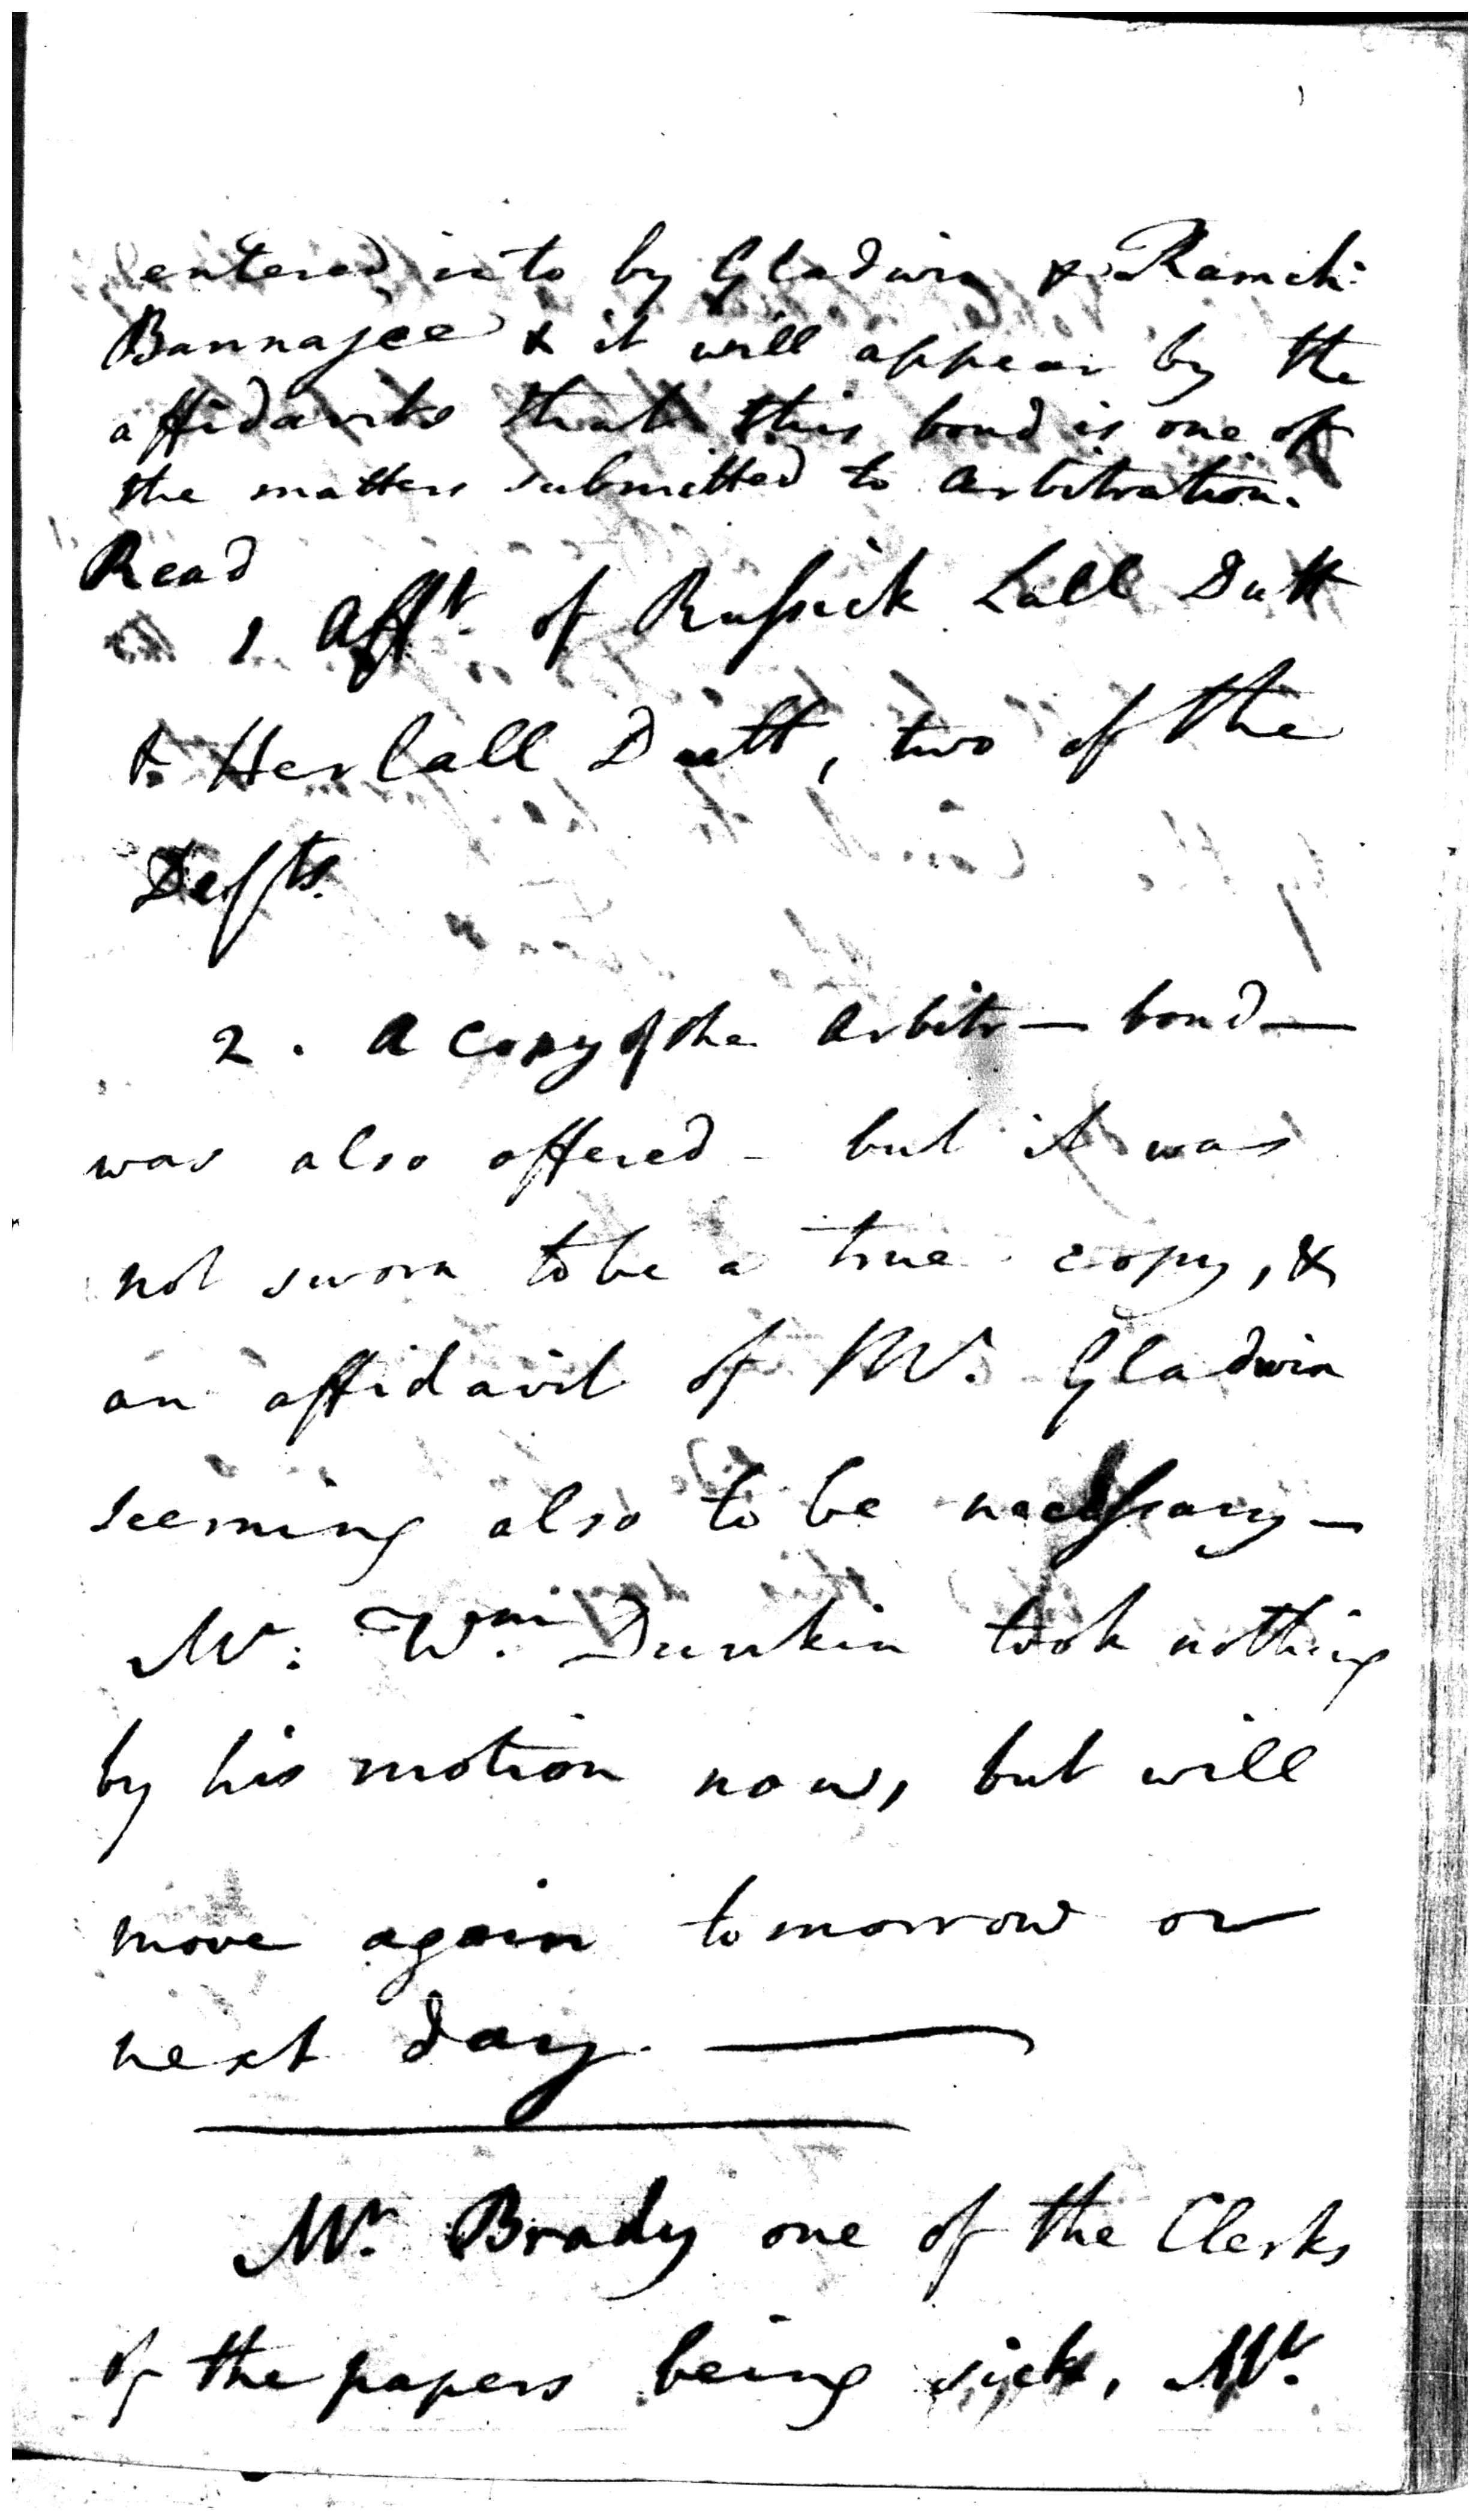 entered into by Gladwin & Ramch:
Bannajee & it will appear by the
affidavits that this bond is one of
the matters submitted to arbitration.
Read
1 Afft. of Russick Lall Dutt
& Herlall Dutt, two of the
Defts.
2. A copy of the Arbitr— bond—
was also offered - but it was
not sworn to be a true copy, &
an affidavit of Mr. Gladwin
seeming also to be necessary—
Mr. Wm. Dunkin took nothing
by his motion now, but will
move again tomorrow or
next day. —
Mr. Brady one of the Clerks
of the papers being sick, Mr.